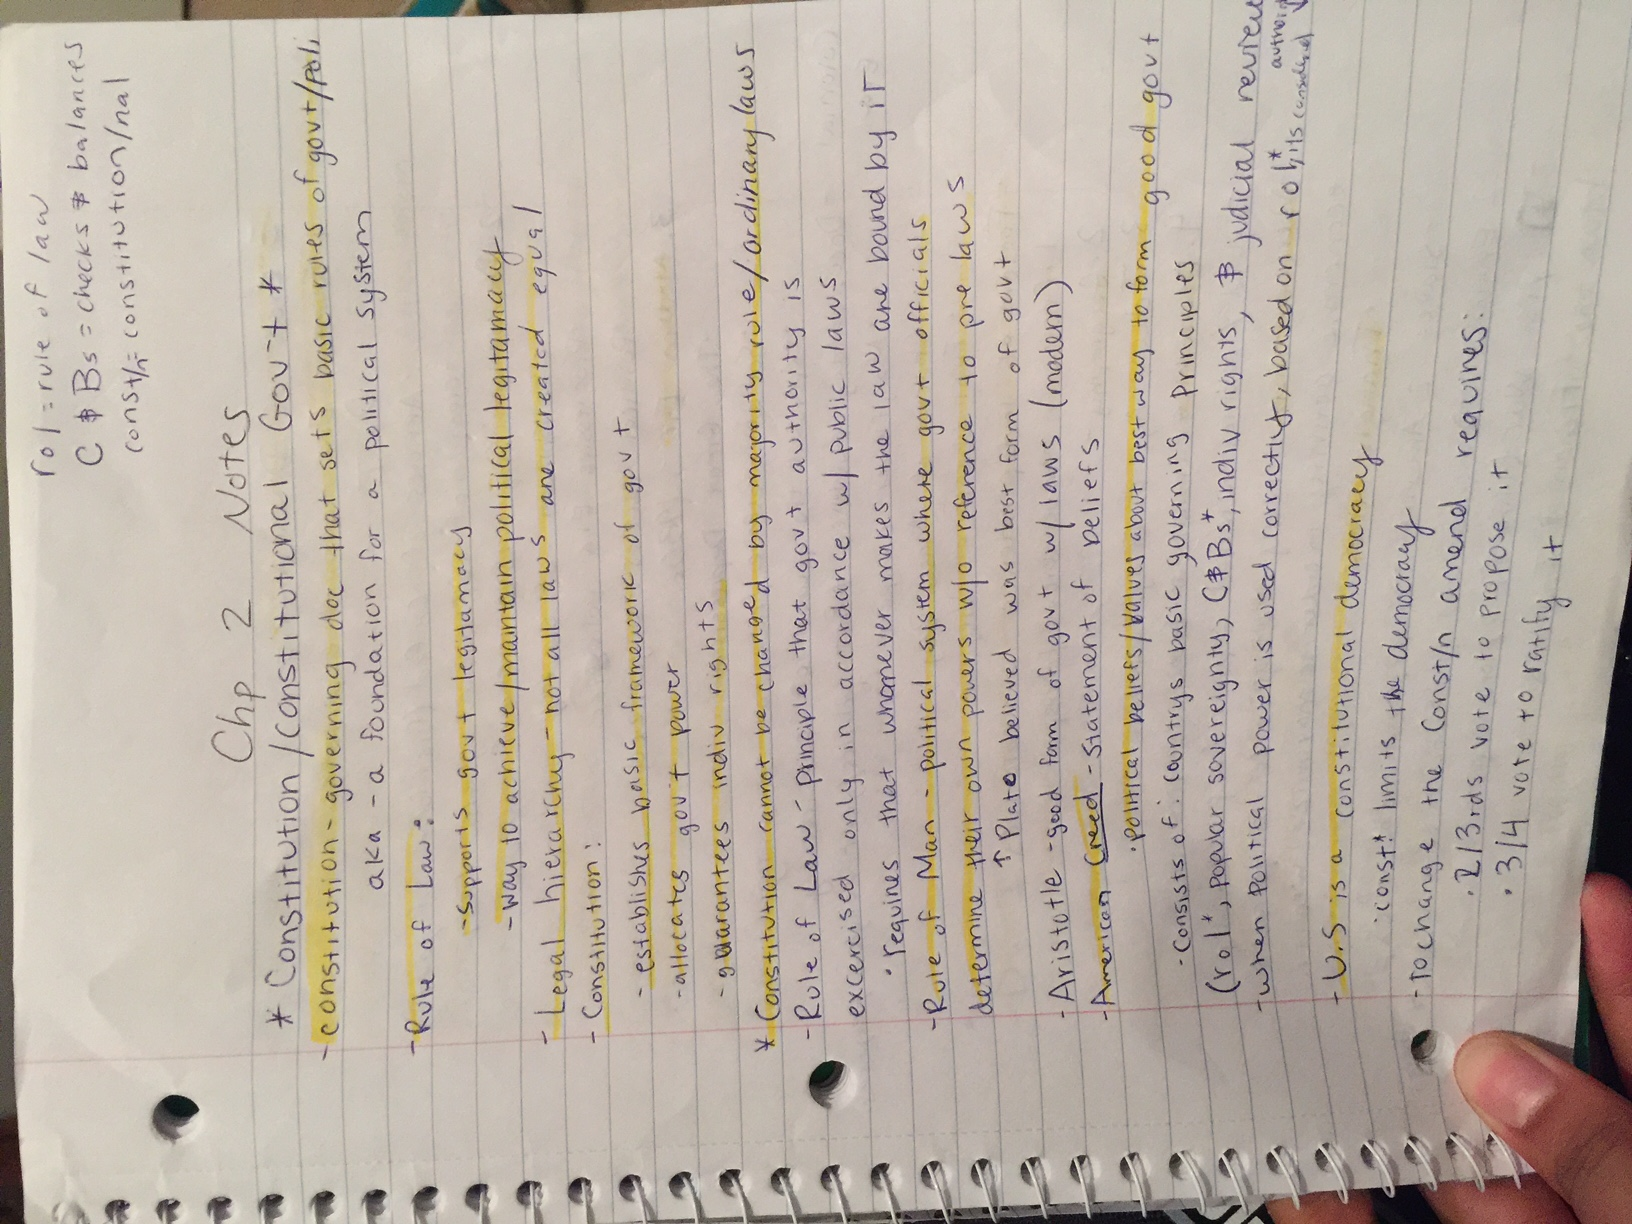 rol = rule of law
C & Bs = checks & balances
const/n = constitution/nal
Chp 2 Notes
* Constitution/Constitutional Gov't *
- constitution - governing doc that sets basic rules of govt/poli
aka - a foundation for a political system
- Rule of Law:
- supports govt legitamacy
- way to achieve/maintain political legitamacy
- Legal hierarchy - not all laws are created equal
- Constitution:
- establishes basic framework of govt
- allocates gov't power
- guarantees indiv rights
* Constitution cannot be changed by majority rule/ordinary laws
- Rule of Law - principle that govt authority is
excercised only in accordance w/ public laws
· requires that whomever makes the law are bound by it
- Rule of Man - political system where govt officials
determine their own powers w/o reference to pre laws
↑ Plato believed was best form of govt
- Aristotle - good form of govt w/ laws (modern)
- American Creed - Statement of beliefs
· political beliefs/values about best way to form good govt
· Consists of: countrys basic governing principles
(rol*, popular sovereignty, C&Bs*, indiv rights, & judicial review
- when political power is used correctly, based on rol*
its considered authority
- U.S is a constitutional democracy
· const! limits the democracy
- To change the Const/n amend requires:
· 2/3rds vote to propose it
· 3/4 vote to ratify it